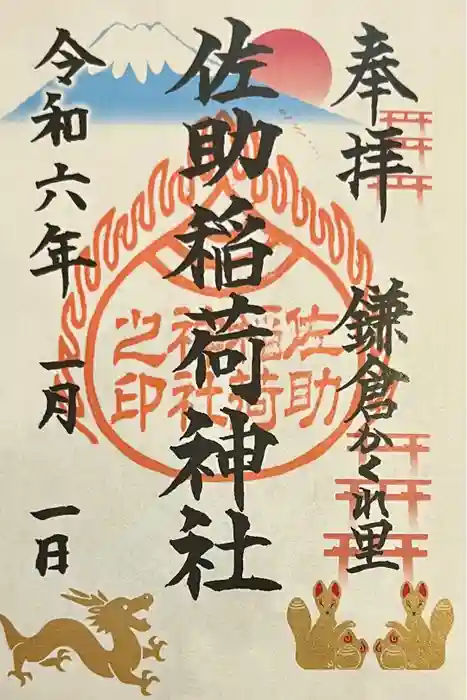 奉拝
鎌倉かくれ里
佐助稲荷神社
令和六年 一月 一日
佐助
稲荷
神社
之印